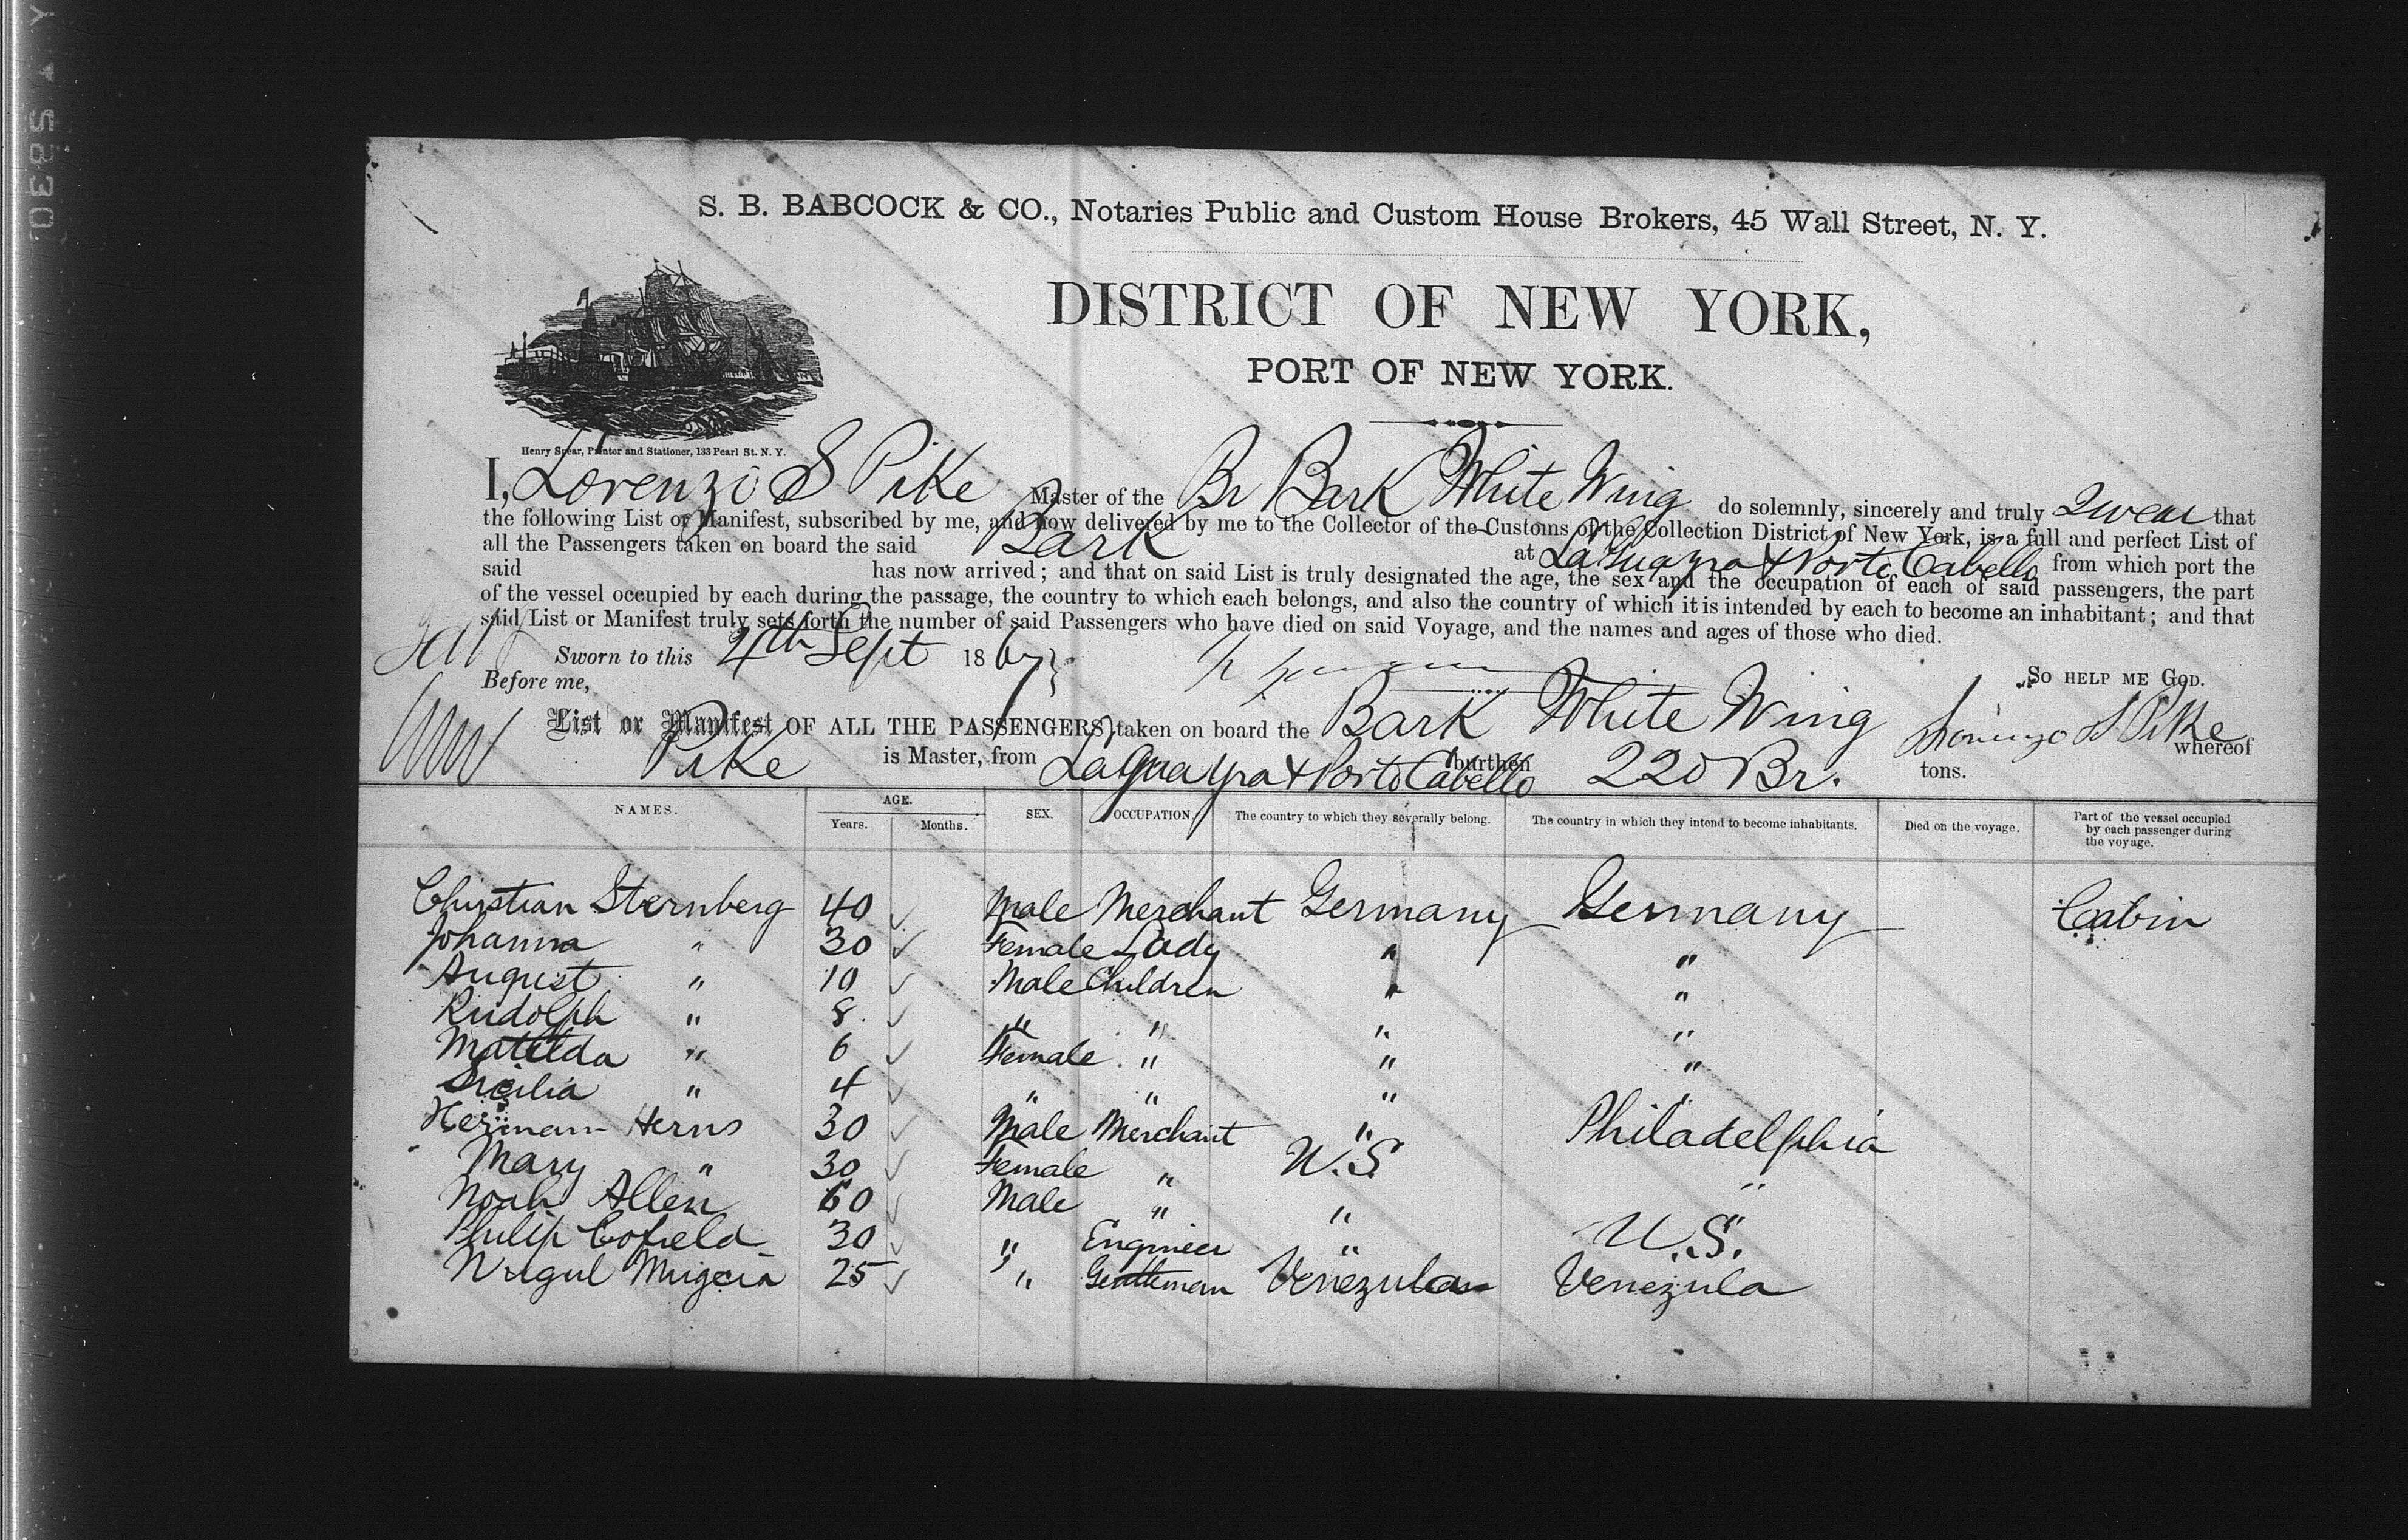 S. B. BABCOCK & CO., Notaries Public and Custom House Brokers, 45 Wall Street, N. Y.
DISTRICT OF NEW YORK,
PORT OF NEW YORK.
Henry Spear, Printer and Stationer, 133 Pearl St. N. Y.
I, Lorenzo S Pike Master of the Br Bark White Wing do solemnly, sincerely and truly Swear that
the following List or Manifest, subscribed by me, and now delivered by me to the Collector of the Customs of the Collection District of New York, is a full and perfect List of
all the Passengers taken on board the said Bark at LaGuayra & Porto Cabello from which port the
said has now arrived; and that on said List is truly designated the age, the sex and the occupation of each of said passengers, the part
of the vessel occupied by each during the passage, the country to which each belongs, and also the country of which it is intended by each to become an inhabitant; and that
said List or Manifest truly sets forth the number of said Passengers who have died on said Voyage, and the names and ages of those who died.
Sworn to this 4th Sept 1867
So help me God.
Before me,
List or Manifest OF ALL THE PASSENGERS taken on board the Bark White Wing Lorenzo S Pike whereof
Pike is Master, from LaGuayra & Porto Cabello burthen 220 Br. tons.
NAMES. AGE. Years. Months. SEX. OCCUPATION. The country to which they severally belong. The country in which they intend to become inhabitants. Died on the voyage. Part of the vessel occupied by each passenger during the voyage.
Christian Sternberg 40 Male Merchant Germany Germany Cabin
Johanna " 30 Female Lady " "
August " 10 Male Children " "
Rudolph " 8 " " " "
Matilda " 6 Female " " "
" 4 " " " "
Hermann Herns 30 Male Merchant " Philadelphia
Mary " 30 Female " U.S. "
Noah Allen 60 Male " " "
Philip Cofield 30 " Engineer " U.S.
25 " Gentleman Venezula Venezula